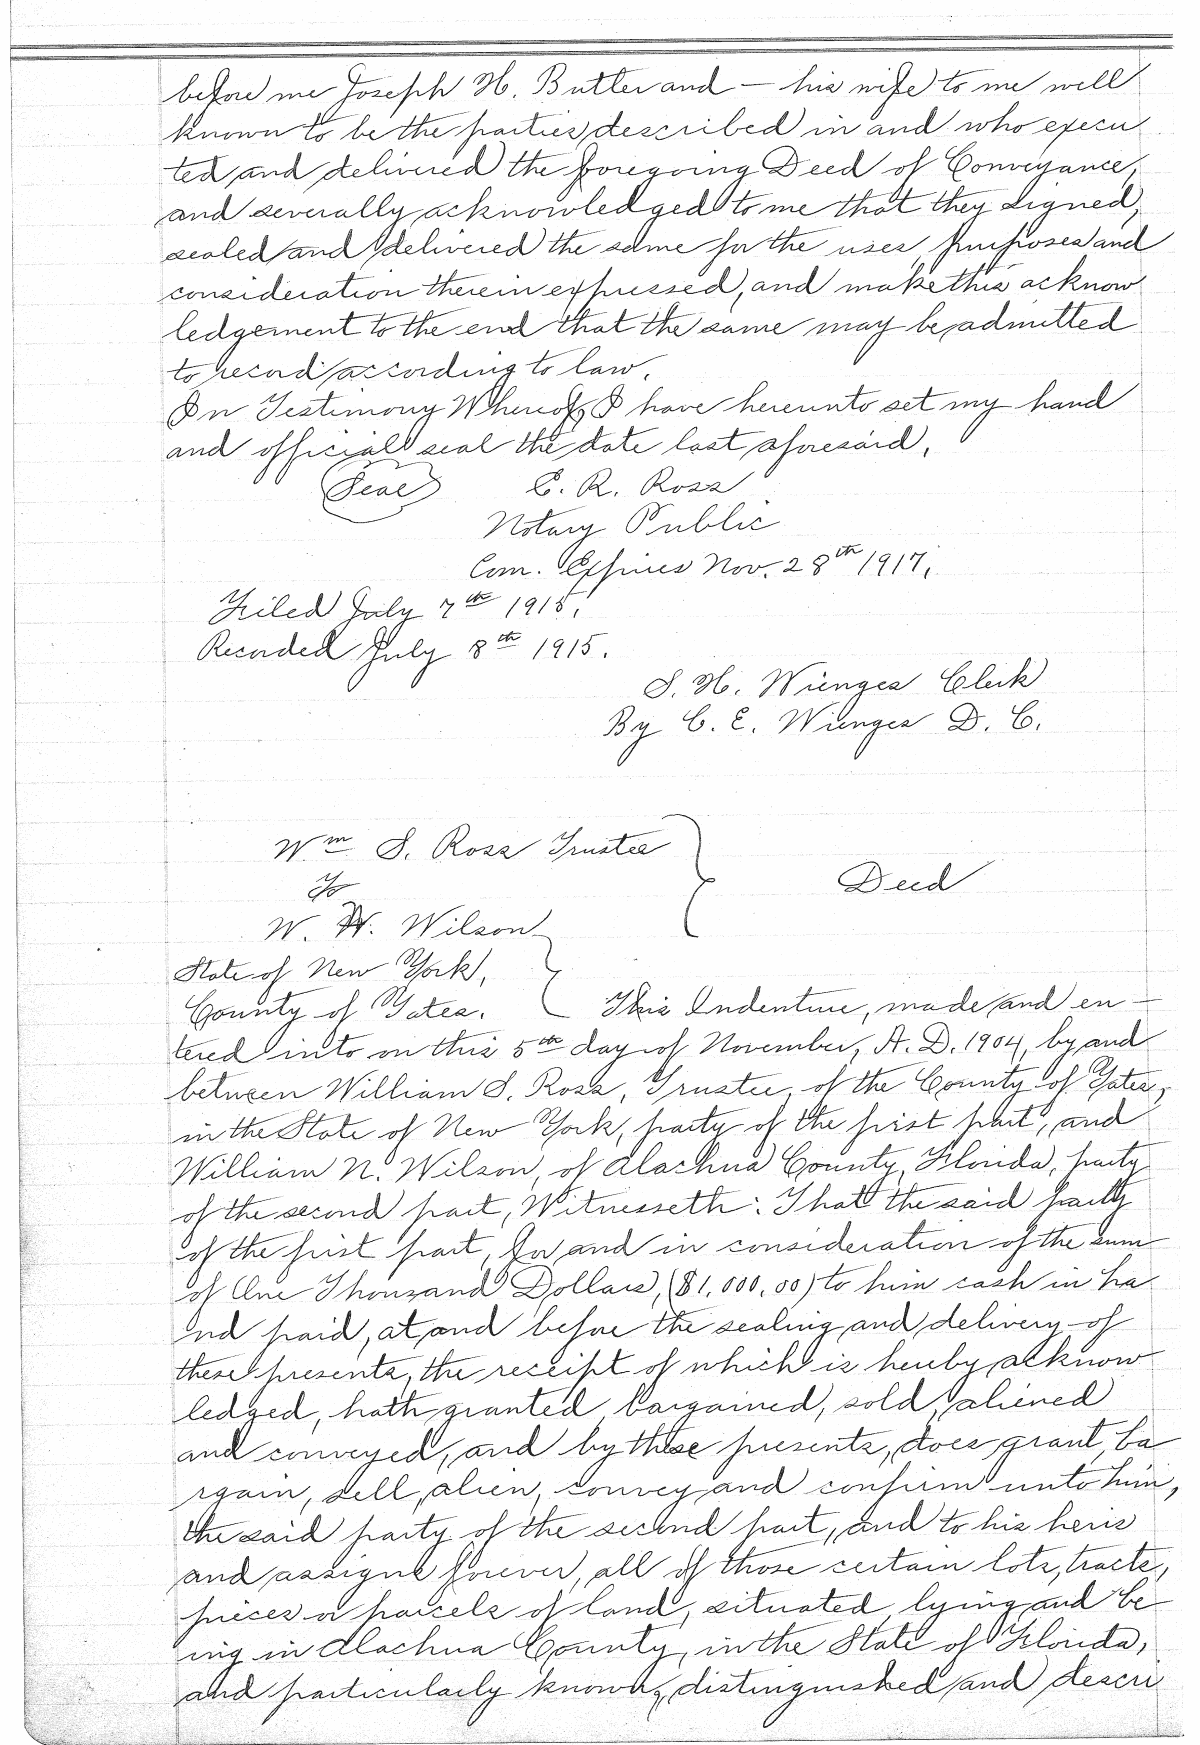 before me Joseph H. Butler and — his wife to me well
known to be the parties described in and who execu
ted and delivered the foregoing Deed of Conveyance,
and severally acknowledged to me that they signed,
sealed and delivered the same for the uses, purposes and
consideration therein expressed, and make this acknow
ledgement to the end that the same may be admitted
to record according to law.
In Testimony Whereof, I have hereunto set my hand
and official seal the date last aforesaid.
(Seal) E. R. Ross
Notary Public
Com. Expires Nov. 28th 1917.
Filed July 7th 1915.
Recorded July 8th 1915.
S. H. Wienges Clerk
By C. E. Wienges D. C.
Wm S. Ross Trustee
To
Deed
W. N. Wilson
State of New York,
County of Yates. This Indenture, made and en –
tered into on this 5th day of November, A. D. 1904, by and
between William S. Ross, Trustee, of the County of Yates,
in the State of New York, party of the first part, and
William N. Wilson, of Alachua County, Florida, party
of the second part, Witnesseth: That the said party
of the first part, for and in consideration of the sum
of One Thousand Dollars, ($1,000.00) to him cash in ha
nd paid, at and before the sealing and delivery of
these presents, the receipt of which is hereby acknow
ledged, hath granted, bargained, sold, aliened
and conveyed, and by these presents, does grant, ba
rgain, sell, alien, convey and confirm unto him,
the said party of the second part, and to his heirs
and assigns forever, all of those certain lots, tracts,
pieces or parcels of land, situated, lying and be
ing in Alachua County, in the State of Florida,
and particularly known, distinguished and descri